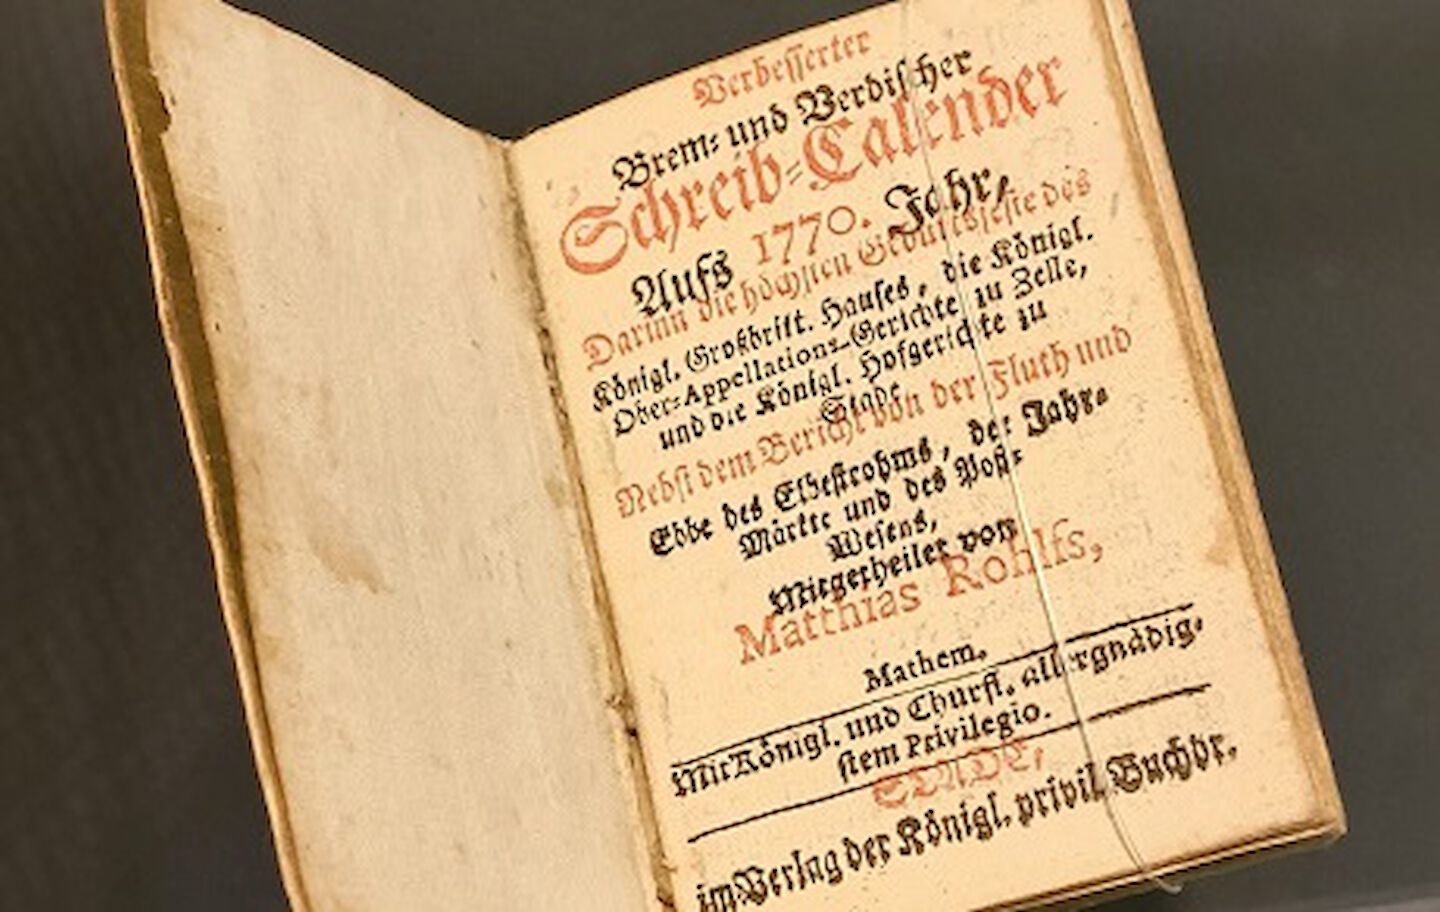 Verbesserter
Brem- und Verdischer
Schreib-Calender
Aufs 1770. Jahr,
Darinn die höchsten Geburtsfeste des
Königl. Großbritt. Hauses, die Königl.
Ober-Appellations-Gerichte zu Zelle,
und die Königl. Hofgerichte zu
Stade
Nebst dem Bericht von der Fluth und
Ebbe des Elbestrohms, der Jahr-
Märkte und des Post-
Wesens,
Mitgetheilet von
Matthias Rohlfs,
Mathem.
Mit Königl. und Churfl. allergnädig-
stem Privilegio.
STADE,
im Verlag der Königl. privil. Buchdr.